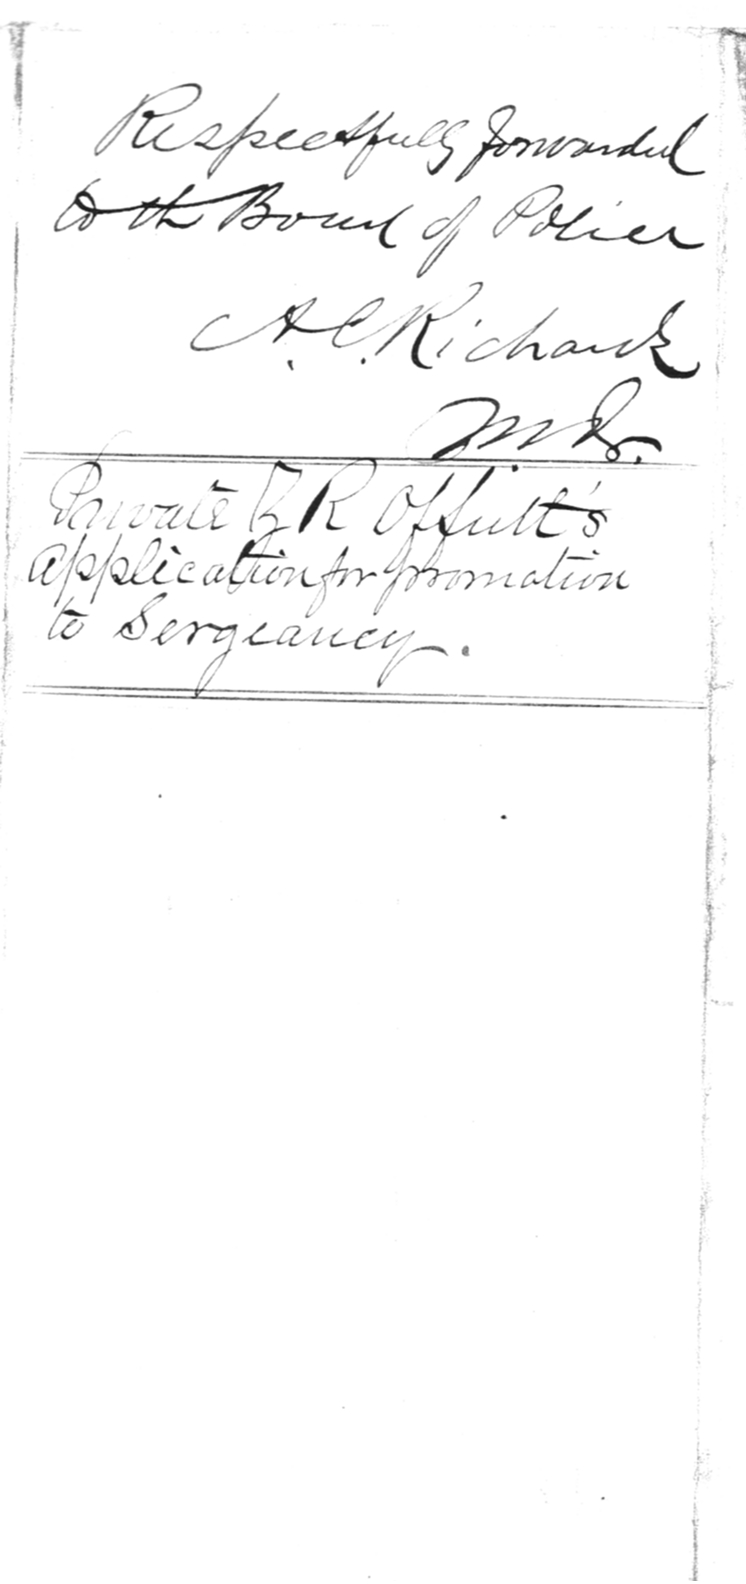 Respectfully forwarded
to the Board of Police
A. C. Richards
Private Z R Offutt's
application for promotion
to Sergeancy.